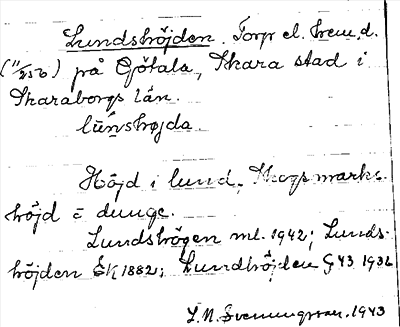 Lundshöjden. Torp el. hem. d.
(11/250) på Götala, Skara stad i
Skaraborgs län.
lúnshøjda
Höjd i lund. Skogsmarks-
höjd = dunge.
Lundshögen ml. 1942; Lunds-
höjden Ek 1882; Lundhöjden G 43 1932
L. N. Svenungsson. 1943